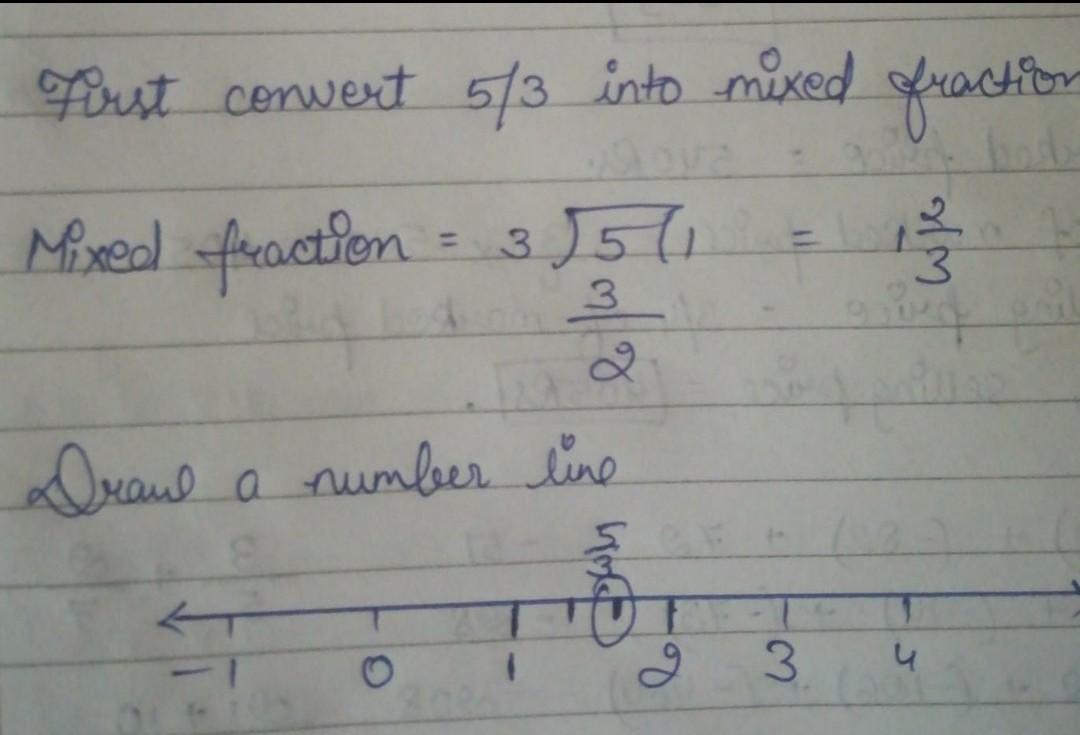 First convert 5/3 into mixed fraction
Mixed fraction = 3 ) 5 ( 1 = 1 2/3
3
2
Draw a number line
5/3
-1 0 1 2 3 4